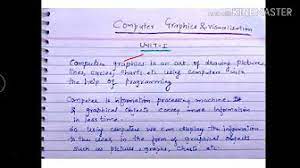 MADE WITH
KINEMASTER
Computer Graphics & Visualization
UNIT-I
Computer graphics is an art of drawing pictures,
lines, curves, charts etc using computers with
the help of programming
Computer is information processing machine. It
graphical objects convey more information
in less time.
So using computer we can display the information
to the user in the form of graphical objects
such as pictures, graphs, charts etc.